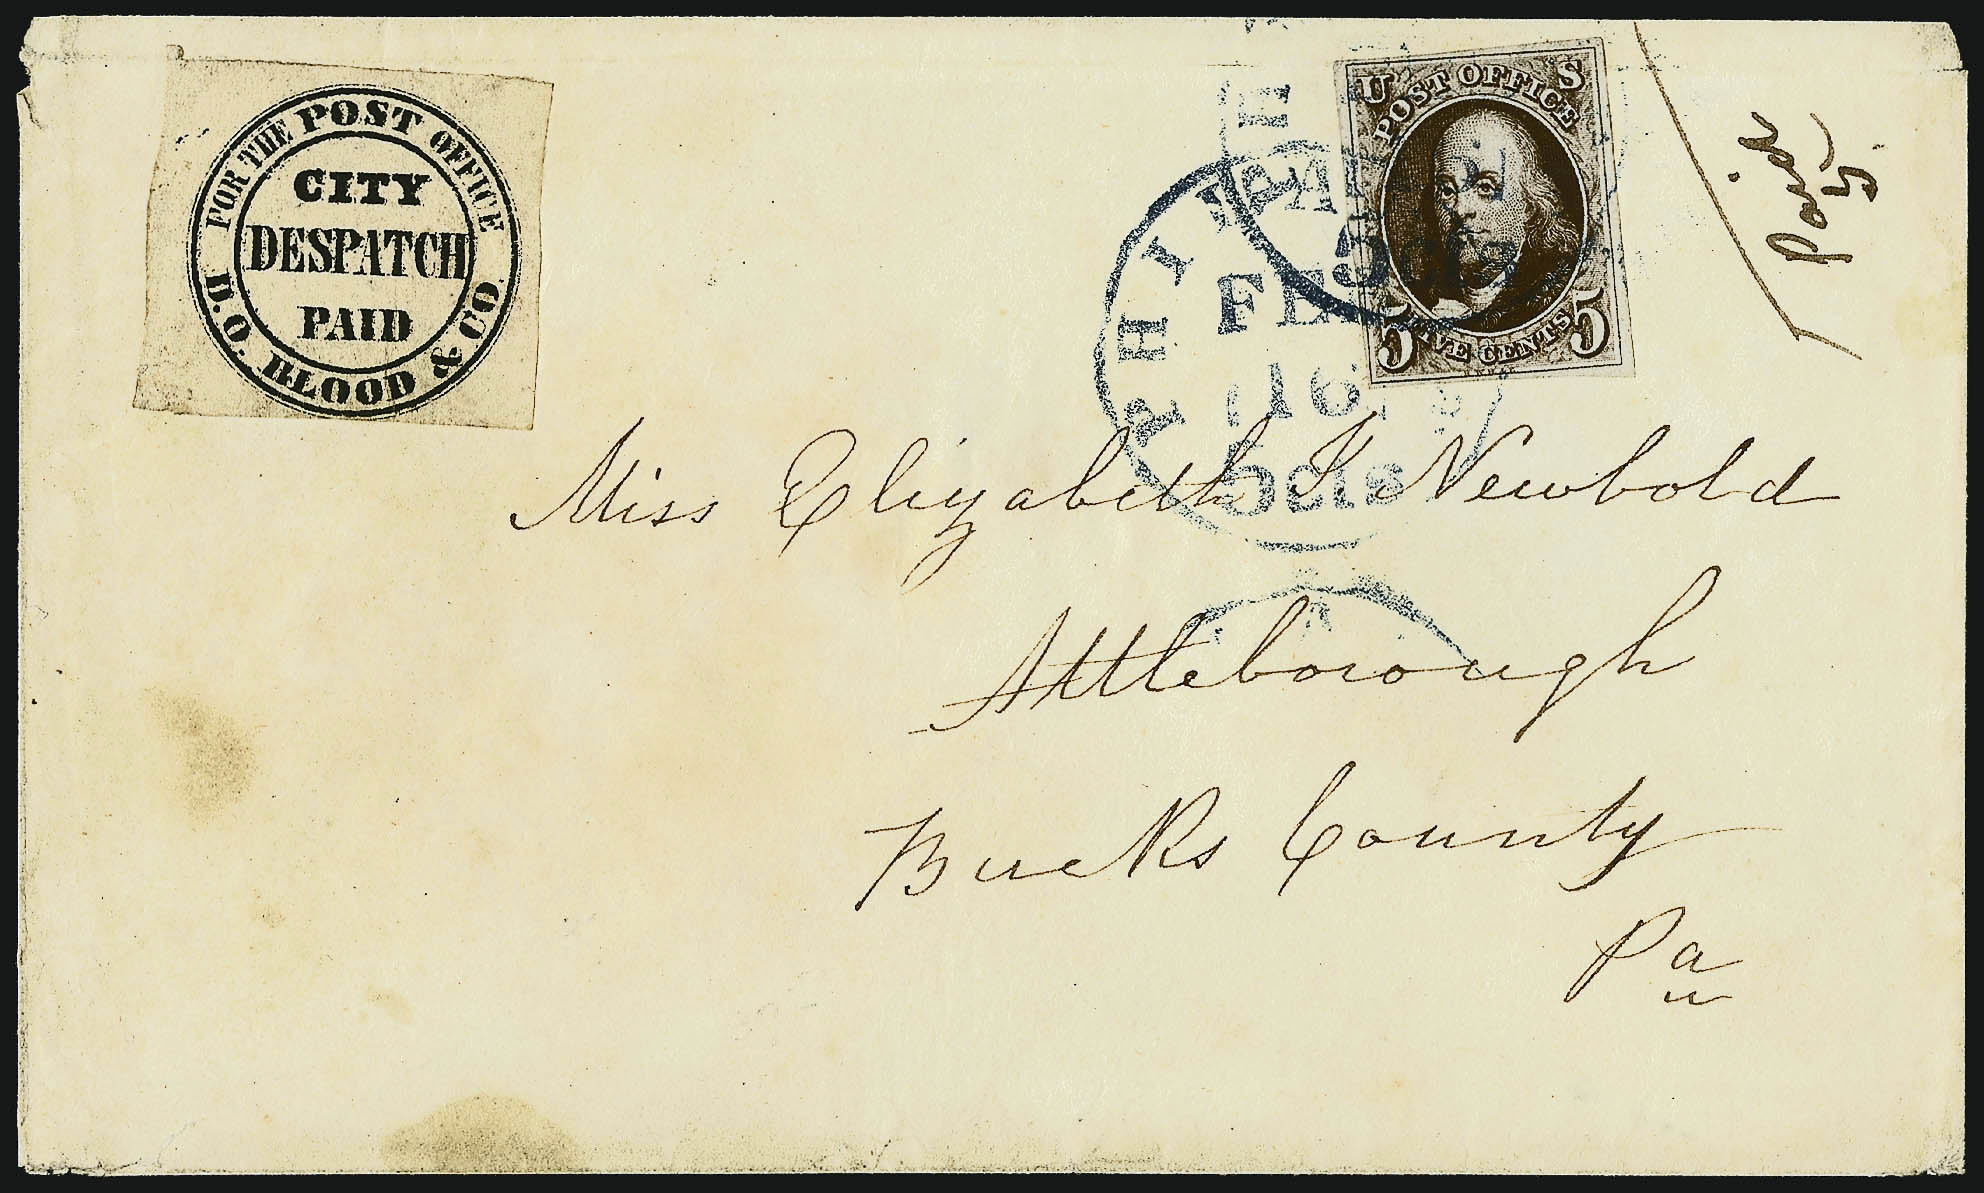 FOR THE POST OFFICE
CITY
DESPATCH
PAID
D.O. BLOOD & CO.
U S
POST OFFICE
5 FIVE CENTS 5
Paid
5.
FEB
16
5cts
Miss Elizabeth Newbold
Attleborough
Bucks County
Pa